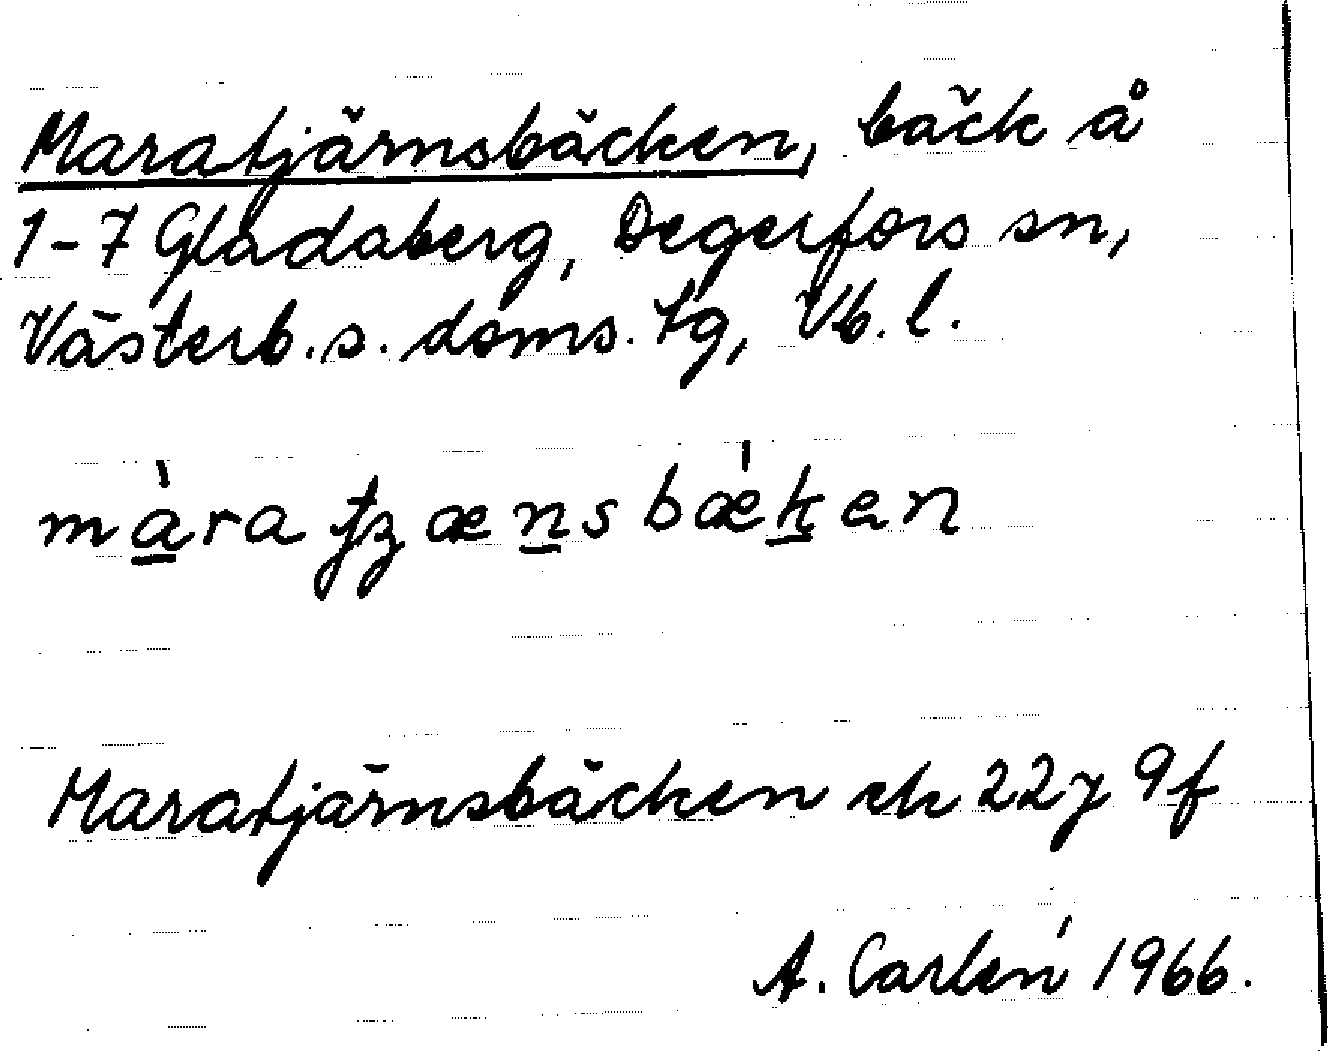 Maratjärnsbäcken, bäck å
1-7 Gladaberg, Degerfors sn,
Västerb. s. doms. tg, Vb. l.
Maratjärnsbäcken ek 22J 9f
A. Carlén 1966.